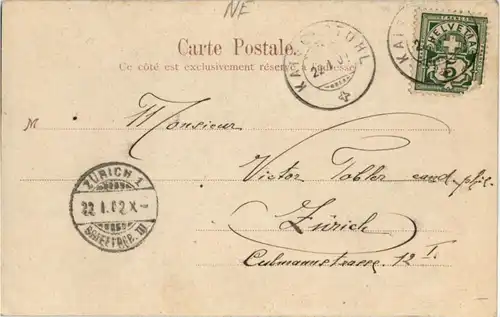 NE
Carte Postale.
Ce côté est exclusivement réservé à l'adresse.
KAISERSTUHL
22.I.02
HELVETIA
FRANCO
5
M Monsieur
Victor Tobler cand. phil.
Zürich
Culmannstrasse 12 I.
ZÜRICH 1
22.I.02.X-
BRIEFTRÄG. III